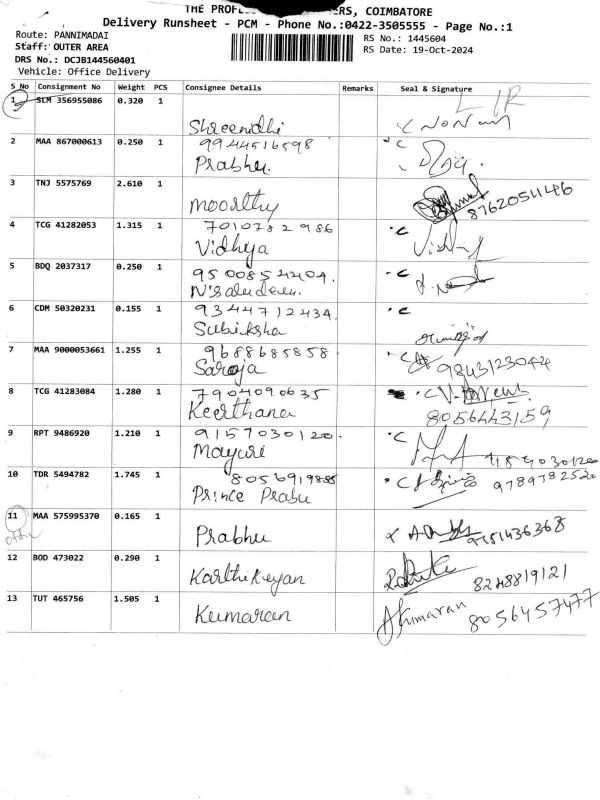 THE PROFES ERS, COIMBATORE
Delivery Runsheet - PCM - Phone No.:0422-3505555 - Page No.:1
Route: PANNIMADAI
RS No.: 1445604
Staff: OUTER AREA
RS Date: 19-Oct-2024
DRS No.: DCJB144560401
Vehicle: Office Delivery
S No Consignment No Weight PCS Consignee Details Remarks Seal & Signature
1 SLM 356955086 0.320 1
Shreenidhi
2 MAA 867000613 0.250 1 9944516598
Prabhu.
3 TNJ 5575769 2.610 1
Moorthy 8762051146
4 TCG 41282053 1.315 1 7010782986
Vidhya
5 BDQ 2037317 0.250 1
6 CDM 50320231 0.155 1 9344712434.
Subiksha
7 MAA 9000053661 1.255 1 9688685858
Saroja 9843123044
8 TCG 41283084 1.280 1 7904090635
Keerthana 8056443159
9 RPT 9486920 1.210 1 9157030120.
Mayuri
10 TDR 5494782 1.745 1
Prince Prabu 9789782520
11 MAA 575995370 0.165 1
Prabhu
12 BOD 473022 0.290 1
Karthikeyan 8248819121
13 TUT 465756 1.505 1
Kumaran AKumaran 8056457477